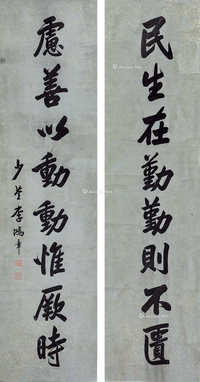 民生在勤勤則不匱
慮善以動動惟厥時
少荃李鴻章